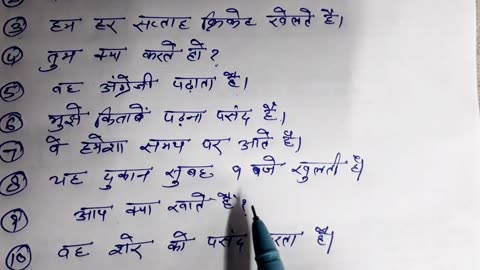 ③ हम हर सप्ताह क्रिकेट खेलते हैं।
④ तुम क्या करते हो?
⑤ वह अंग्रेजी पढ़ाता है।
⑥ मुझे किताबें पढ़ना पसंद है।
⑦ वे हमेशा समय पर आते हैं।
⑧ यह दुकान सुबह 9 बजे खुलती है।
⑨ आप क्या खाते हैं?
⑩ वह शेर को पसंद है।